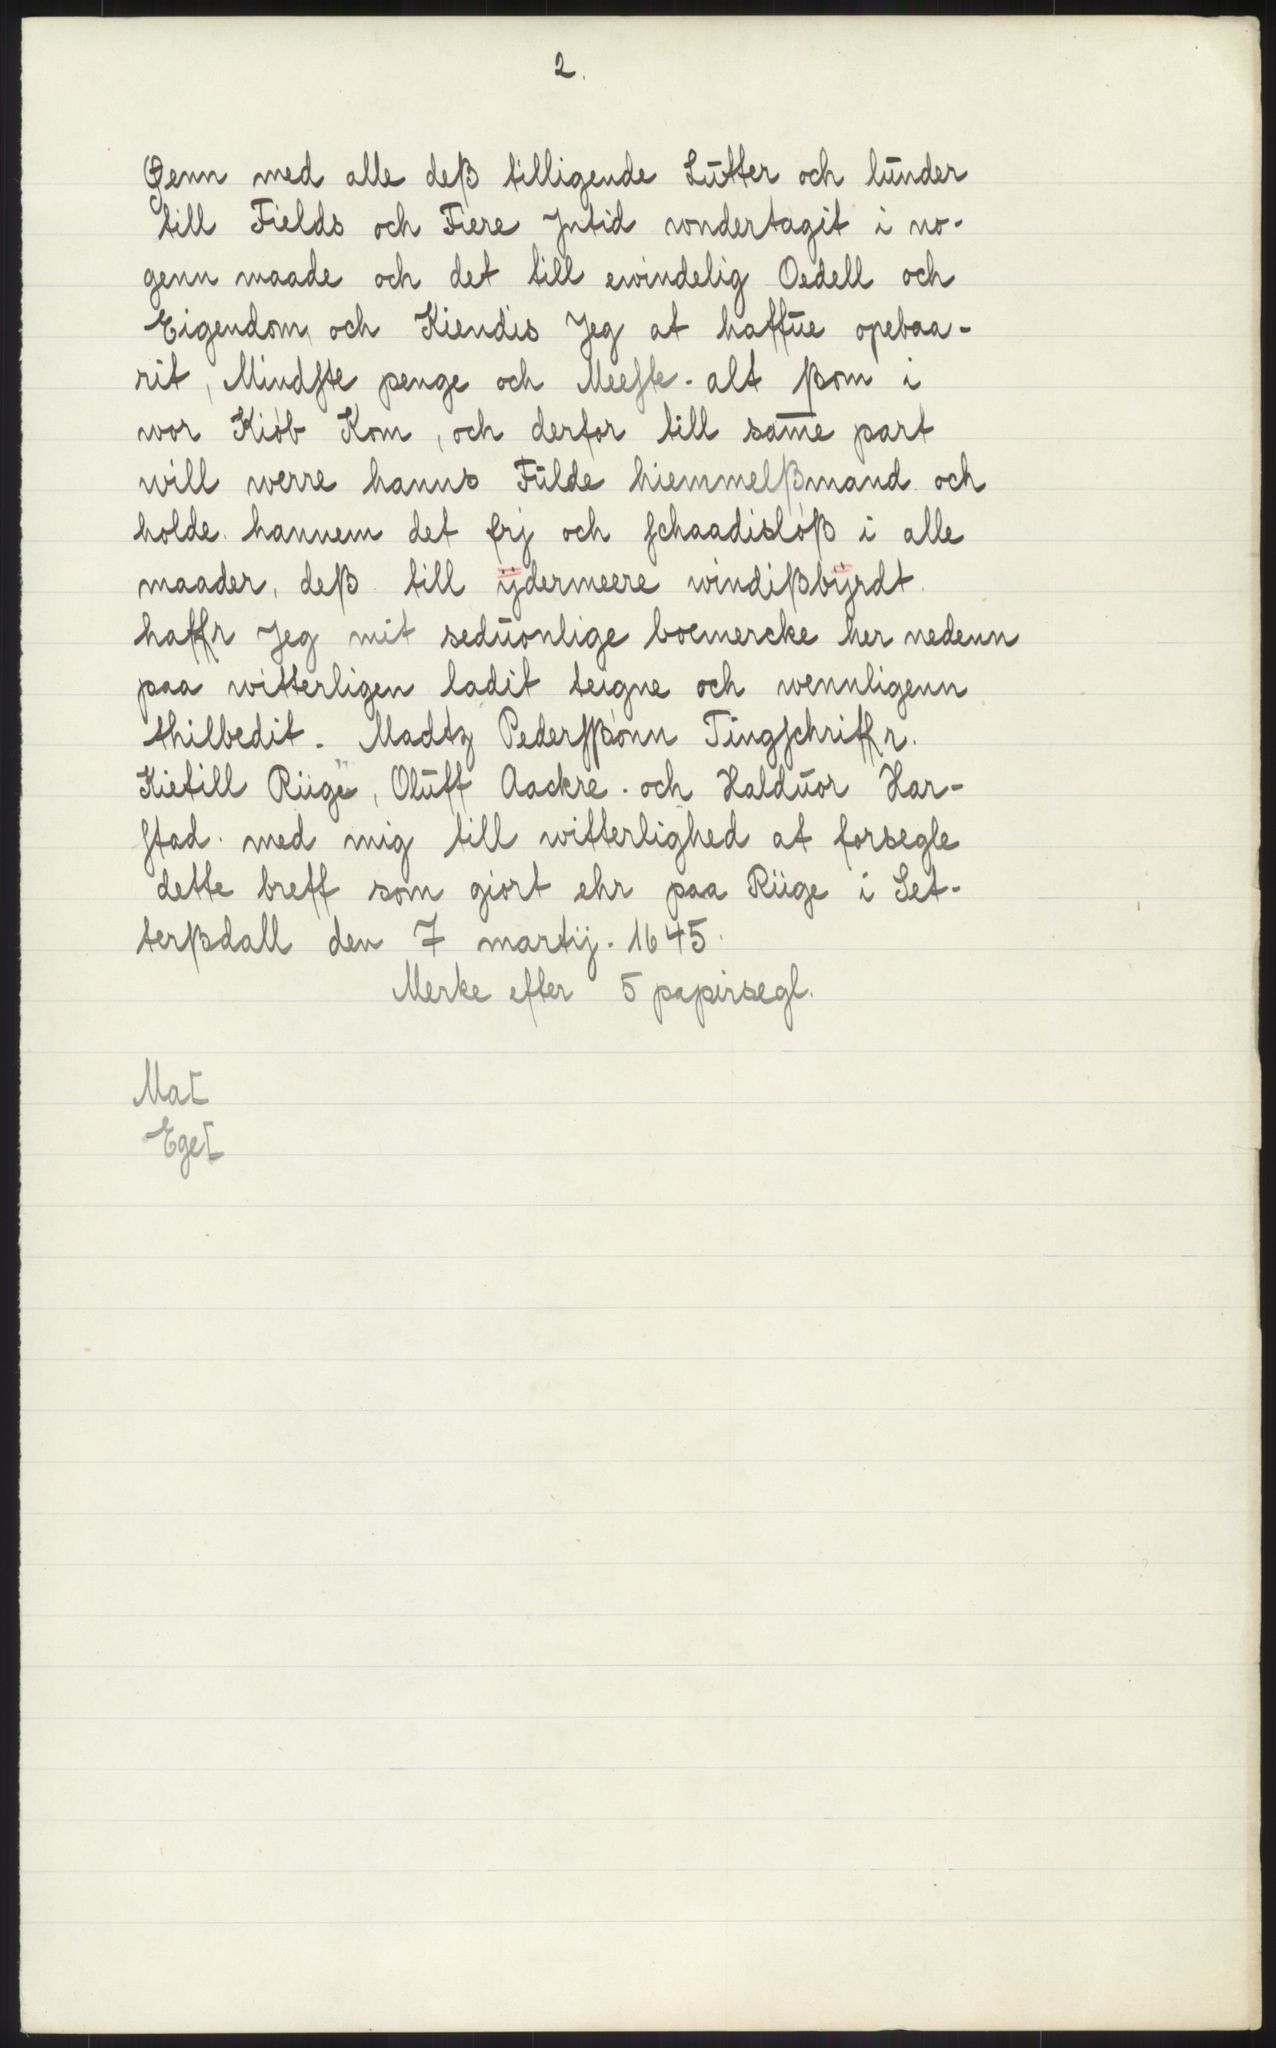 2.
Øenn med alle deß tilligende Lutter och lunder
till Fields och Fiere Jntid wndertagit i no-
genn maade och det till ewindelig Oedell och
Eigendom och Kiendis Jeg at haffūe opebaa-
rit, Mindste penge och Meeste. alt ßom i
wor Kiøb Kom, och derfor till sam̄e part
will werre hanns Fūlde hiemmelßmand och
holde hannem det frj och schaadisløß i alle
maader, deß till ÿdermeere windißbÿrdt
haffr Jeg mit sedūonlige boemercke her nedenn
paa witterligen ladit teigne och wennligenn
thilbedit. Madtz Pederßønn Tingschriffr.
Kietill Rüge, Olūff Aackre. och Haldūor Har-
stad. med mig till witterlighed at forsegle
dette breff som giort ehr paa Rüge i Set-
terßdall den 7 martij. 1645.
Merke efter 5 papirsegl.
Mat
Eget